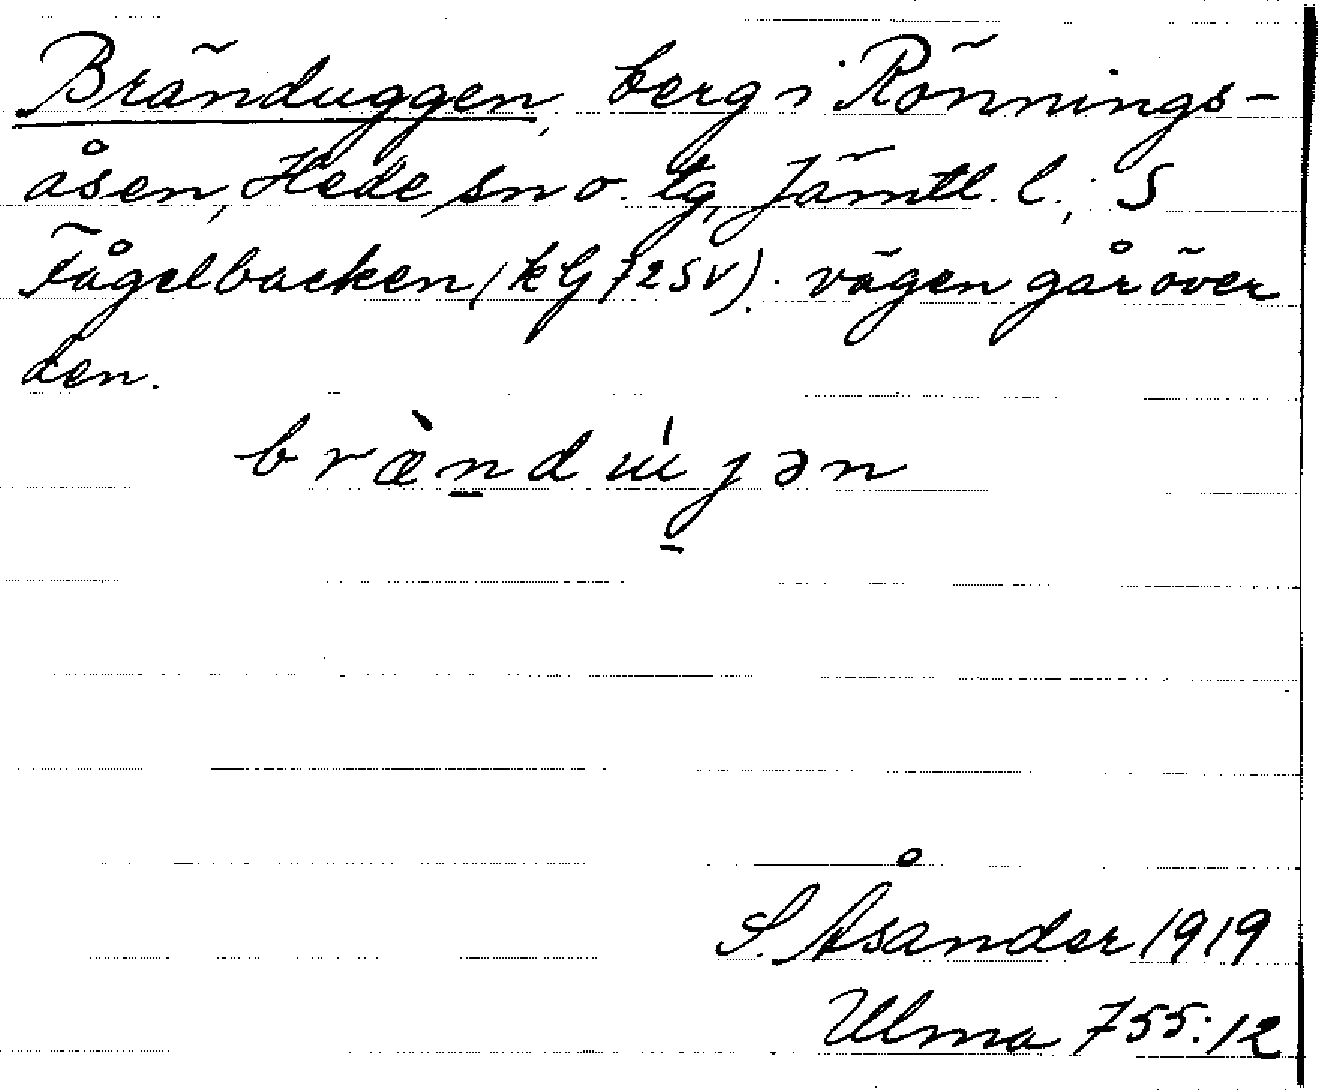 Bränduggen, berg i Rönnings-
åsen, Hede sn o. tg, Jämtl. l.; S
Fågelbacken (kG 72 SV). vägen går över
den.
brænduɯjən
S. Åsander 1919
Ulma 755:12